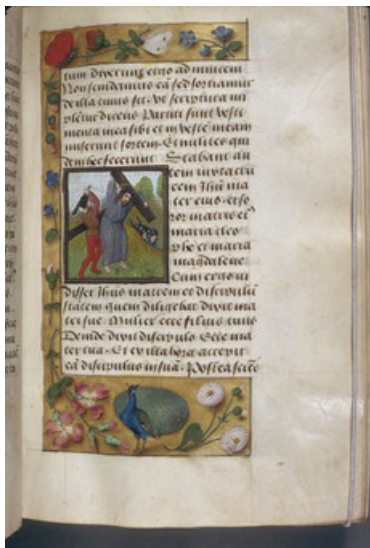 tum Dixerunt ergo ad invicem
Non scindamus eā sed sortiamur
de illa cuius sit. Ut scriptura im
pletur dicens Partiti sunt vesti
menta mea sibi et in vestē meam
miserunt sortem Et milites qui
dem hec fecerunt Stabant au
tem iuxta cru
cem Jhū ma
ter eius et so
ror matris ei9
maria cleo
phe et maria
magdalene
Cum ergo vi
disset Jhūs matrem et discipulū
stantem quem diligebat dixit ma
tri sue Mulier ecce filius tuus
Deinde dixit discipulo Ecce ma
ter tua Et ex illa hora accepit
eā discipulus in suā Postea sciēs